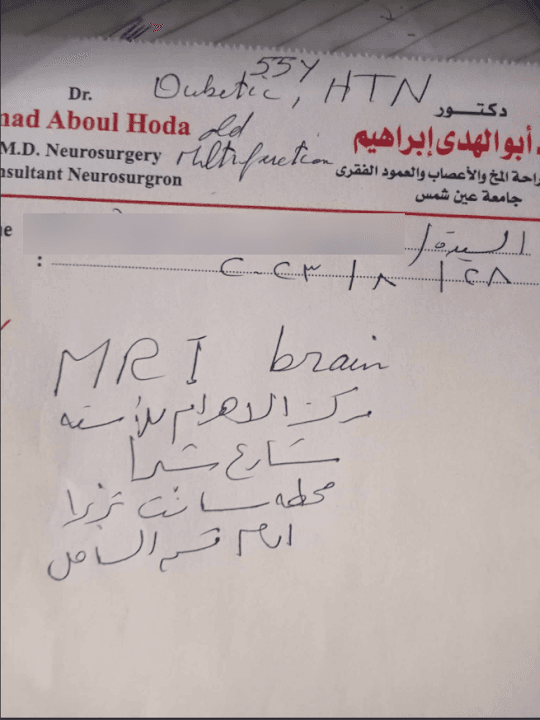 55Y
Dubetic, HTN
Dr.
mad Aboul Hoda
old
M.D. Neurosurgery
nsultant Neurosurgron
دكتــور
أبو الهدى إبراهيم
راحة المخ والأعصاب والعمود الفقرى
جامعة عين شمس
السيدة/
٢٨ / ٨ / ٢٠٢٣
MRI brain
مركز الاهرام للأشعه
شارع شبرا
محطه سانت تريزا
امام قسم الساحل